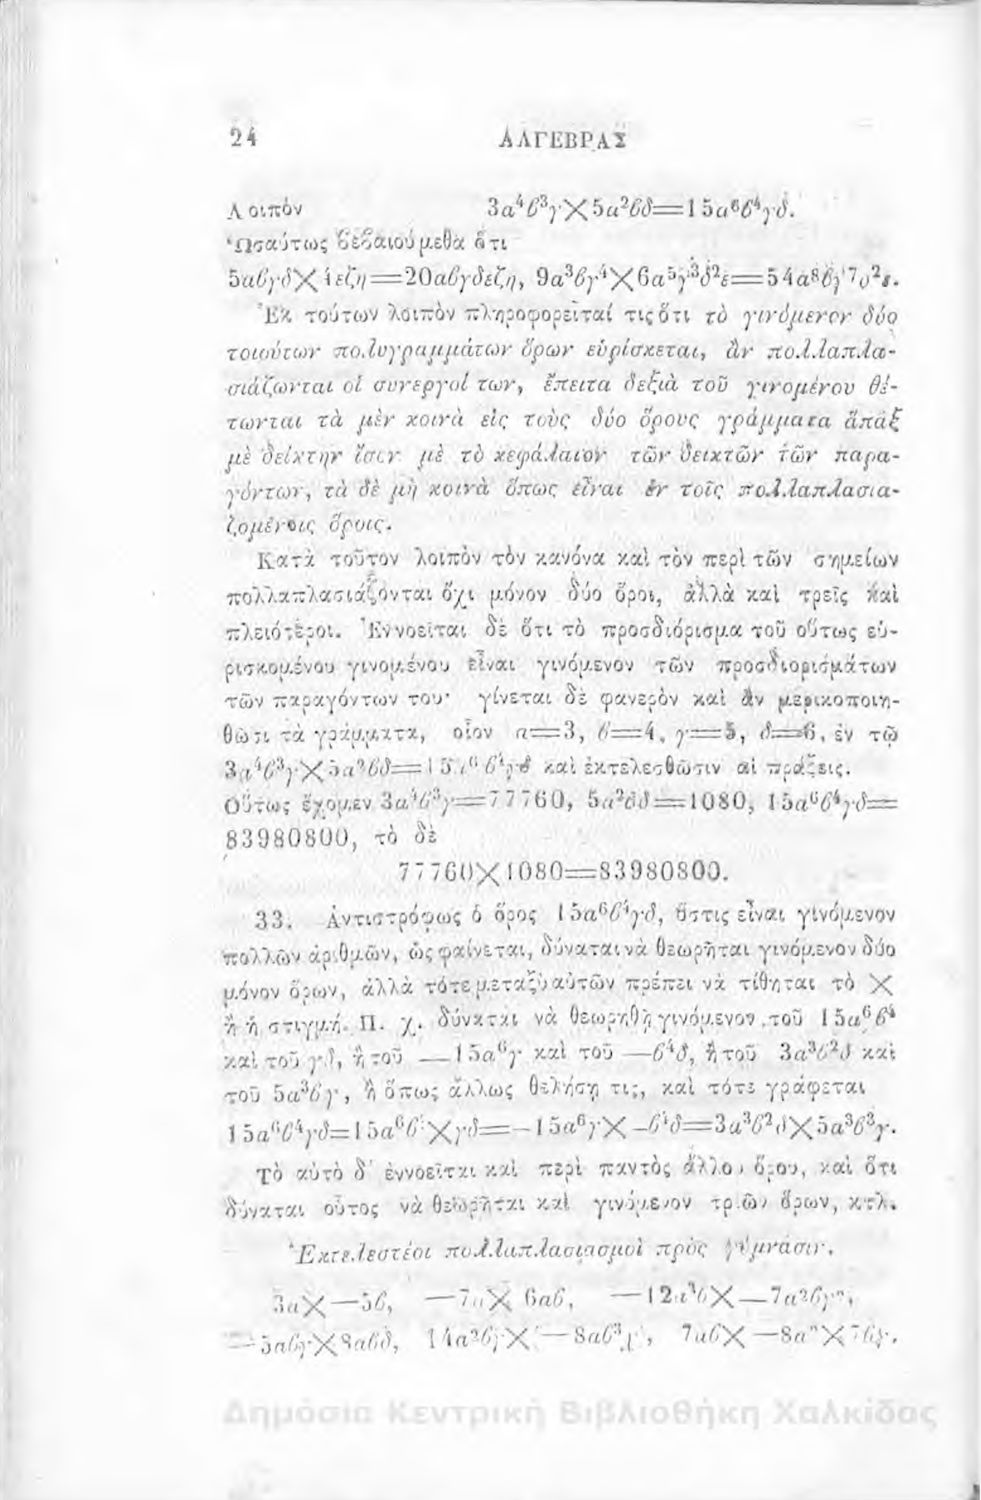 24 ΑΛΓΕΒΡΑΣ
Λοιπόν 3α⁴ϐ³γ×5α²ϐδ=15α⁶ϐ⁴γδ.
Ὡσαύτως βεβαιούμεθα ὅτι
5αϐγδ×4εζη=20αϐγδεζη, 9α³ϐγ⁴×6α⁵γ³δ²ε=54α⁸ϐγ⁷δ²ε.
Ἐκ τούτων λοιπὸν πληροφορεῖταί τις ὅτι τὸ γινόμενον δύο
τοιούτων πολυγραμμάτων ὅρων εὑρίσκεται, ἂν πολλαπλα-
σιάζωνται οἱ συνεργοί των, ἔπειτα δεξιὰ τοῦ γινομένου θέ-
τωνται τὰ μὲν κοινὰ εἰς τοὺς δύο ὅρους γράμματα ἅπαξ
μὲ δείκτην ἴσον μὲ τὸ κεφάλαιον τῶν δεικτῶν τῶν παρα-
γόντων, τὰ δὲ μὴ κοινὰ ὅπως εἶναι ἐν τοῖς πολλαπλασια-
ζομένοις ὅροις.
Κατὰ τοῦτον λοιπὸν τὸν κανόνα καὶ τὸν περὶ τῶν σημείων
πολλαπλασιάζονται ὄχι μόνον δύο ὅροι, ἀλλὰ καὶ τρεῖς καὶ
πλειότεροι. Ἐννοεῖται δὲ ὅτι τὸ προσδιόρισμα τοῦ οὕτως εὑ-
ρισκομένου γινομένου εἶναι γινόμενον τῶν προσδιορισμάτων
τῶν παραγόντων του· γίνεται δὲ φανερὸν καὶ ἂν μερικοποιη-
θῶσι τὰ γράμματα, οἷον α=3, ϐ=4, γ=5, δ=6, ἐν τῷ
3α⁴ϐ³γ×5α²ϐδ=15α⁶ϐ⁴γδ καὶ ἐκτελεσθῶσιν αἱ πράξεις.
Οὕτως ἔχομεν 3α⁴ϐ³γ=77760, 5α²ϐδ=1080, 15α⁶ϐ⁴γδ=
83980800, τὸ δὲ
77760×1080=83980800.
33. Ἀντιστρόφως ὁ ὅρος 15α⁶ϐ⁴γδ, ὅστις εἶναι γινόμενον
πολλῶν ἀριθμῶν, ὡς φαίνεται, δύναται νὰ θεωρῆται γινόμενον δύο
μόνον ὅρων, ἀλλὰ τότε μεταξὺ αὐτῶν πρέπει νὰ τίθηται τὸ ×
ἢ ἡ στιγμή. Π. χ. δύναται νὰ θεωρηθῇ γινόμενον τοῦ 15α⁶ϐ⁴
καὶ τοῦ γδ, ἢ τοῦ —15α⁶γ καὶ τοῦ —ϐ⁴δ, ἢ τοῦ 3α³ϐ²δ καὶ
τοῦ 5α³ϐγ, ἢ ὅπως ἄλλως θελήσῃ τις, καὶ τότε γράφεται
15α⁶ϐ⁴γδ=15α⁶ϐ⁴×γδ=—15α⁶γ×—ϐ⁴δ=3α³ϐ²δ×5α³ϐ³γ.
Τὸ αὐτὸ δ' ἐννοεῖται καὶ περὶ παντὸς ἄλλου ὅρου, καὶ ὅτι
δύναται οὗτος νὰ θεωρῆται καὶ γινόμενον τριῶν ὅρων, κτλ.
Ἐκτελεστέοι πολλαπλασιασμοὶ πρὸς γύμνασιν.
3α×—5ϐ, —7α×6αϐ,
—5αϐγ×8αϐδ,
Δημόσια Κεντρική Βιβλιοθήκη Χαλκίδας